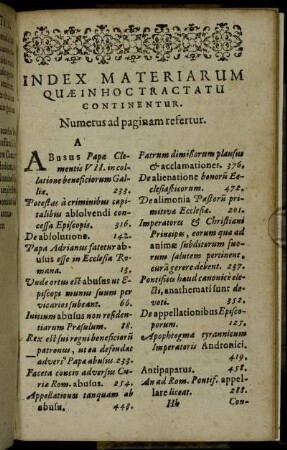 INDEX MATERIARUM
QUÆ IN HOC TRACTATU
CONTINENTUR.
Numerus ad paginam refertur.
A
ABusus Papæ Cle-
mentis VII. in col-
latione beneficiorum Gal-
liæ. 233.
Potestas à criminibus capi-
talibus absolvendi con-
cessa Episcopis. 316.
De absolutione. 142.
Papa Adrianus fatetur ab-
usus esse in Ecclesia Ro-
mana. 15.
Unde ortus est abusus ut E-
piscopi munus suum per
vicarios subeant. 66.
Initium abusus non residen-
tiarum Præsulum. 18.
Rex est sui regni beneficiorũ
patronus, ut ea defendat
adversꝰ Papæ abusus 233.
Faceta concio adversus Cu-
riæ Rom. abusus. 254.
Appellationes tanquam ab
abusu. 443.
Patrum dimissorum plausus
& acclamationes. 376.
De alienatione bonorũ Ec-
clesiasticorum. 472.
De alimonia Pastorũ pri-
mitivæ Ecclesiæ. 201.
Imperatores & Christiani
Principes, eorum quæ ad
animæ subditorum suo-
rum salutem pertinent,
curã gerere debent. 237.
Pontifices haud canonicè ele-
cti, anathemati sunt de-
voti. 352.
De appellationibus Episco-
porum. 125.
Apophtegma tyrannicum
Imperatoris Andronici.
419.
Antipapatus. 458.
An ad Rom. Pontif. appel-
lare liceat. 288.
Hh Con-